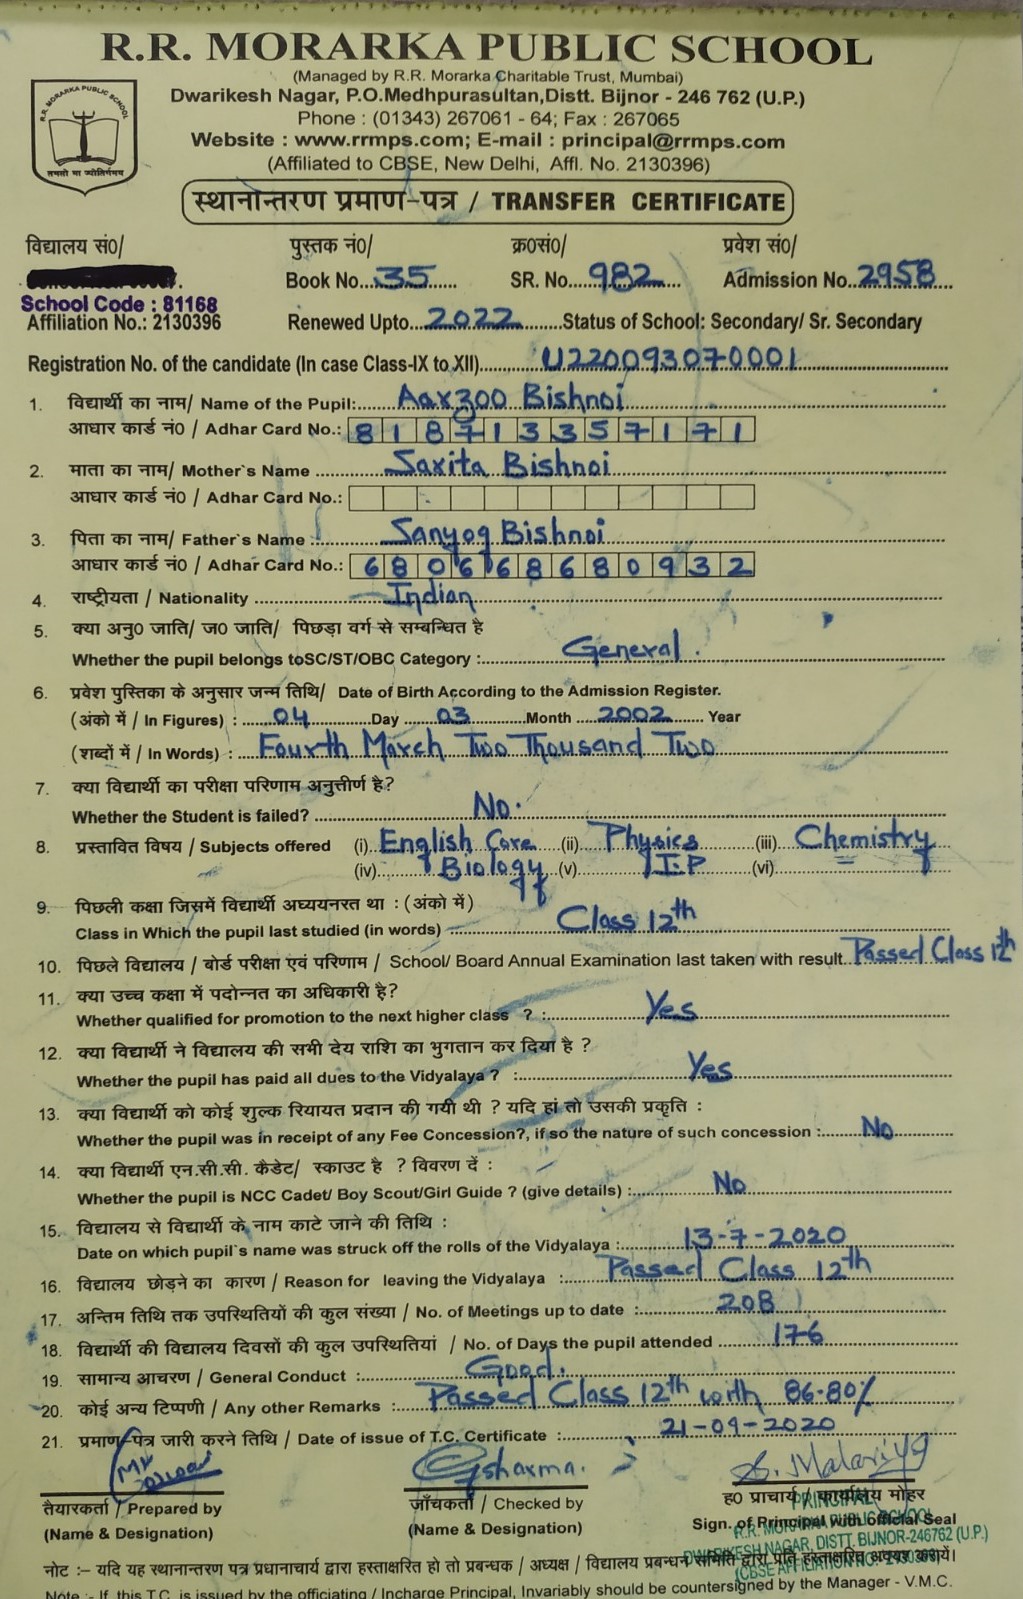 R.R. MORARKA PUBLIC SCHOOL
(Managed by R.R. Morarka Charitable Trust, Mumbai)
Dwarikesh Nagar, P.O.Medhpurasultan,Distt. Bijnor - 246 762 (U.P.)
Phone : (01343) 267061 - 64; Fax : 267065
Website : www.rrmps.com; E-mail : principal@rrmps.com
(Affiliated to CBSE, New Delhi, Affl. No. 2130396)
R.R. MORARKA PUBLIC SCHOOL
तमसो मा ज्योतिर्गमय
स्थानान्तरण प्रमाण-पत्र / TRANSFER CERTIFICATE
विद्यालय सं0/ पुस्तक नं0/ क्र0सं0/ प्रवेश सं0/
Book No. 35 SR. No. 982 Admission No. 2958
School Code : 81168
Affiliation No.: 2130396 Renewed Upto 2022 Status of School: Secondary/ Sr. Secondary
Registration No. of the candidate (In case Class-IX to XII) U220093070001
1. विद्यार्थी का नाम/ Name of the Pupil: Aarzoo Bishnoi
आधार कार्ड नं0 / Adhar Card No.: 8 1 8 7 1 3 3 5 7 1 7 1
2. माता का नाम/ Mother`s Name Sarita Bishnoi
आधार कार्ड नं0 / Adhar Card No.:
3. पिता का नाम/ Father`s Name : Sanyog Bishnoi
आधार कार्ड नं0 / Adhar Card No.: 6 8 0 6 6 8 6 8 0 9 3 2
4. राष्ट्रीयता / Nationality Indian
5. क्या अनु0 जाति/ ज0 जाति/ पिछड़ा वर्ग से सम्बन्धित है
Whether the pupil belongs toSC/ST/OBC Category : General.
6. प्रवेश पुस्तिका के अनुसार जन्म तिथि/ Date of Birth According to the Admission Register.
(अंको में / In Figures) : 04 Day 03 Month 2002 Year
(शब्दों में / In Words) : Fourth March Two Thousand Two
7. क्या विद्यार्थी का परीक्षा परिणाम अनुत्तीर्ण है?
Whether the Student is failed? No.
8. प्रस्तावित विषय / Subjects offered (i) English Core (ii) Physics (iii) Chemistry
(iv) Biology (v) I.P (vi)
9. पिछली कक्षा जिसमें विद्यार्थी अध्ययनरत था : (अंको में)
Class in Which the pupil last studied (in words) Class 12th
10. पिछले विद्यालय / बोर्ड परीक्षा एवं परिणाम / School/ Board Annual Examination last taken with result Passed Class 12th
11. क्या उच्च कक्षा में पदोन्नत का अधिकारी है?
Whether qualified for promotion to the next higher class ? : Yes
12. क्या विद्यार्थी ने विद्यालय की सभी देय राशि का भुगतान कर दिया है ?
Whether the pupil has paid all dues to the Vidyalaya ? : Yes
13. क्या विद्यार्थी को कोई शुल्क रियायत प्रदान की गयी थी ? यदि हां तो उसकी प्रकृति :
Whether the pupil was in receipt of any Fee Concession?, if so the nature of such concession : No
14. क्या विद्यार्थी एन.सी.सी. कैडेट/ स्काउट है ? विवरण दें :
Whether the pupil is NCC Cadet/ Boy Scout/Girl Guide ? (give details) : No
15. विद्यालय से विद्यार्थी के नाम काटे जाने की तिथि :
Date on which pupil`s name was struck off the rolls of the Vidyalaya : 13-7-2020
16. विद्यालय छोड़ने का कारण / Reason for leaving the Vidyalaya : Passed Class 12th
17. अन्तिम तिथि तक उपस्थितियों की कुल संख्या / No. of Meetings up to date : 208
18. विद्यार्थी की विद्यालय दिवसों की कुल उपस्थितियां / No. of Days the pupil attended 176
19. सामान्य आचरण / General Conduct : Good.
20. कोई अन्य टिप्पणी / Any other Remarks : Passed Class 12th with 86.80%
21. प्रमाण-पत्र जारी करने तिथि / Date of issue of T.C. Certificate : 21-09-2020
तैयारकर्ता / Prepared by जाँचकर्ता / Checked by ह0 प्राचार्य / कार्यालय मोहर
(Name & Designation) (Name & Designation) Sign. of Principal with official Seal
PRINCIPAL
R.R. MORARKA PUBLIC SCHOOL
DWARIKESH NAGAR, DISTT. BIJNOR-246762 (U.P.)
(CBSE AFFILIATION NO. 2130396)
नोट :– यदि यह स्थानान्तरण पत्र प्रधानाचार्य द्वारा हस्ताक्षरित हो तो प्रबन्धक / अध्यक्ष / विद्यालय प्रबन्धन समिति द्वारा प्रति हस्ताक्षरित अवश्य करायें।
Note :- If, this T.C. is issued by the officiating / Incharge Principal, Invariably should be countersigned by the Manager - V.M.C.